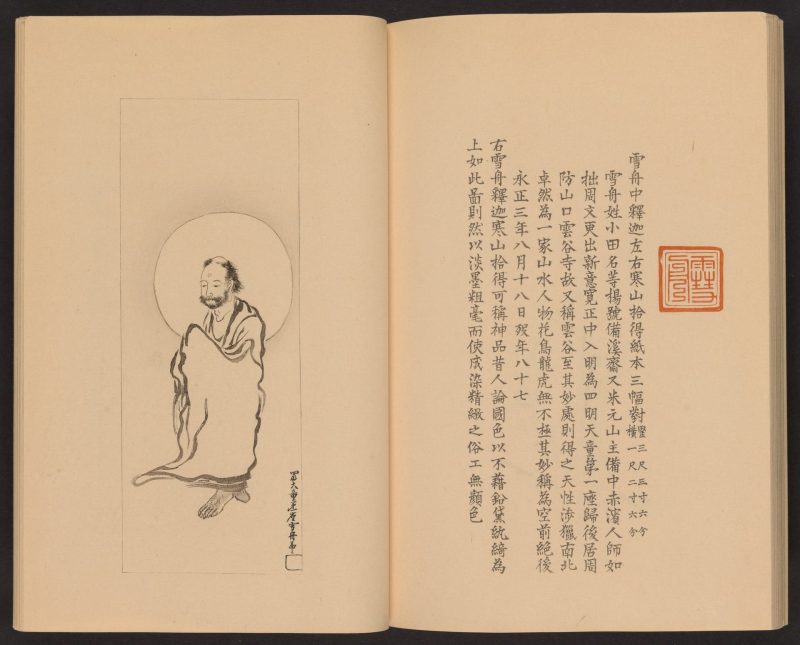 雪舟中釋迦左右寒山拾得紙本三幅對豎三尺三寸六分橫一尺二寸六分
雪舟姓小田名等揚號備溪齋又米元山主備中赤濱人師如
拙周文更出新意寬正中入明為四明天童第一座歸後居周
防山口雲谷寺故又稱雲谷至其妙處則得之天性涉獵南北
卓然為一家山水人物花鳥龍虎無不極其妙稱為空前絕後
永正三年八月十八日歿年八十七
右雪舟釋迦寒山拾得可稱神品昔人論國色以不藉鉛黛紈綺為
上如此畵則然以淡墨粗毫而使成染精緻之俗工無顏色
四明天童第一座雪舟筆